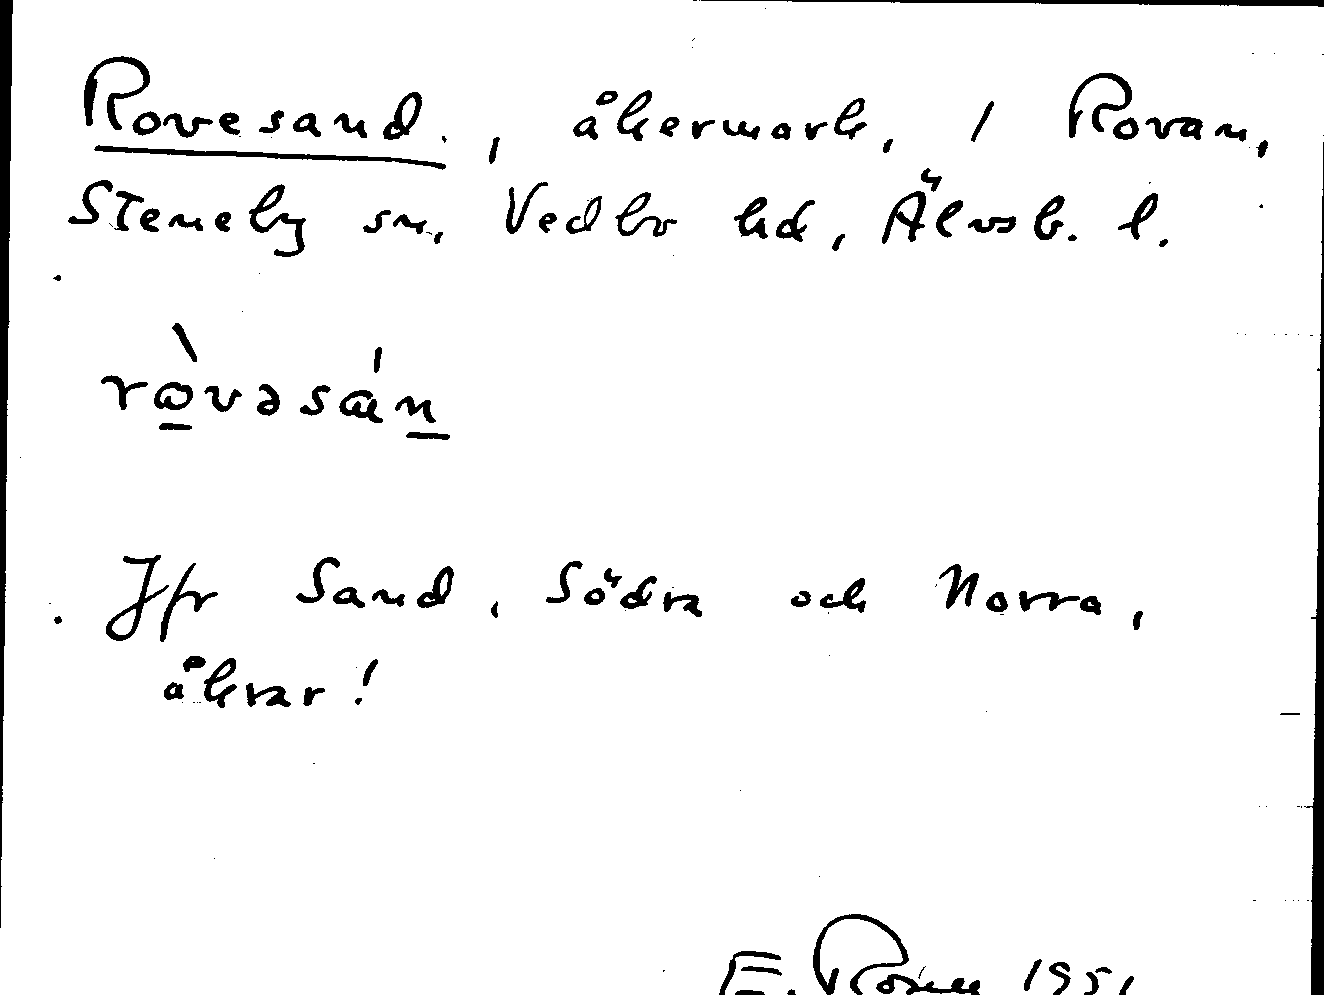 Rovesand., åkermark, / Rovan,
Steneby sn, Vedbo hd, Älvsb. l.
ròvəsán
Jfr Sand, Södra och Norra,
åkrar!
E. Rosell 1951